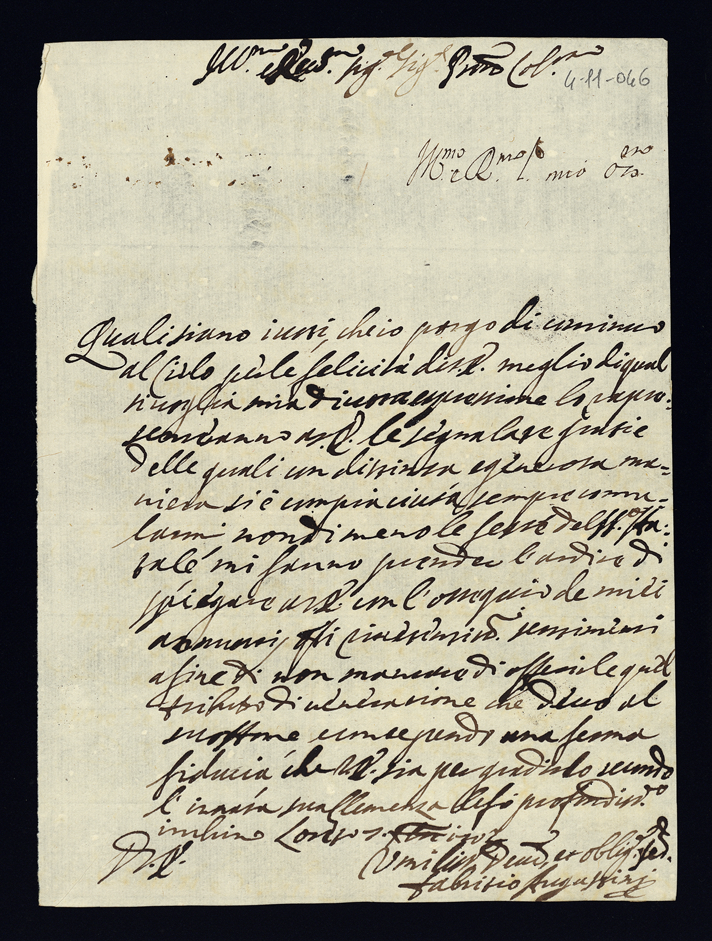 Ill.mo e Rev.mo Sig.r Sig.r Pron Col.mo
4-11-046
Ill.mo e R.mo S. mio Oss.mo
Quali siano i uoti, che io porgo di continuo
al Cielo per le felicità di V.S. meglio di qual
si uoglia mia diuota espressione lo rapre-
senteranno a V.S. le segnalate gratie
delle quali con distinta e generosa ma-
niera si è compiaciuta sempre comu-
larmi nondimeno le feste del SS.o Na-
tale mi fanno prender l'ardire di
spiegare a V.S. con l'ossequio de miei
annuntij sentimenti
a fine di non mancare di offerirle quel
tributo di ueneratione che deuo al
suo una ferma
fiducia che V.S. sia per gradirlo secondo
l'innata sua Clemenza profondiss.o
inchino
D.V.S. Umiliss. Deuot. et oblig. Ser.
Fabritio